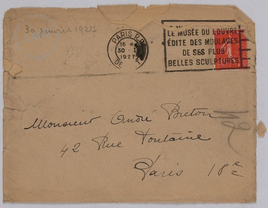 30 janvier 1927
PARIS
16
30
1927
LE MUSÉE DU LOUVRE
ÉDITE DES MOULAGES
DE SES PLUS
BELLES SCULPTURES
Monsieur André Breton
42 Rue Fontaine
Paris